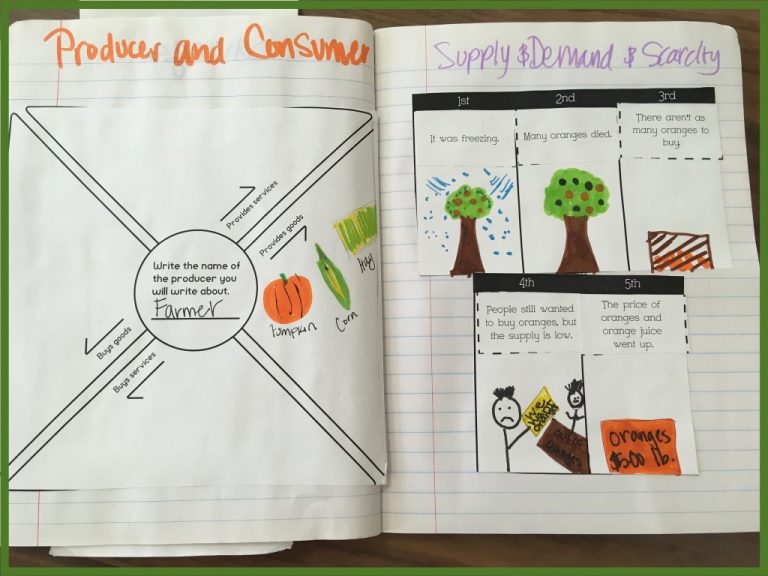 Producer and Consumer
Provides services
Provides goods
Write the name of
the producer you
will write about.
Farmer
Pumpkin
Corn
Hay
Buys goods
Buys services
Supply & Demand & Scarcity
1st
2nd
3rd
It was freezing.
Many oranges died.
There aren't as
many oranges to
buy.
4th
5th
People still wanted
to buy oranges, but
the supply is low.
The price of
oranges and
orange juice
went up.
We
want
oranges
out of
oranges
oranges
$5.00 lb.